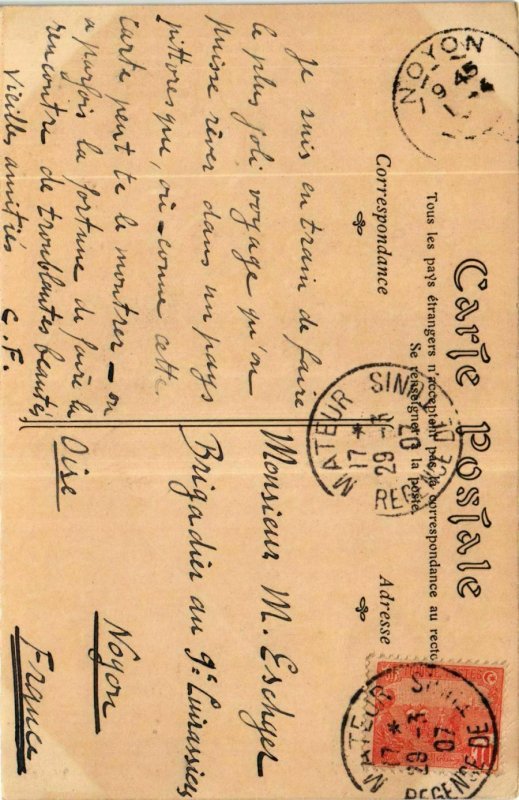 Carte Postale
Tous les pays étrangers n'acceptent pas la correspondance au recto
Se renseigner à la poste
Correspondance
Adresse
NOYON
MATEUR
17 * 29 - 3 07
REGENCE DE
MATEUR
17 * 29 - 3 07
REGENCE DE
Je suis en train de faire
le plus joli voyage qu'on
puisse rêver dans un pays
pittoresque, où - comme cette
carte peut te le montrer - on
a parfois la fortune de faire la
rencontre de troublantes beautés
Vieilles amitiés
C. F.
Monsieur M.
Brigadier au 9e Cuirassiers
Noyon
Oise
France